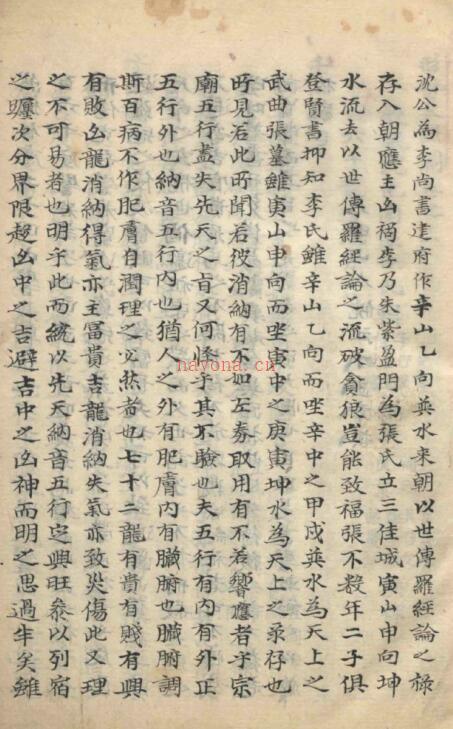 沈公為李尚書建府作辛山乙向巽水來朝以世傳羅經論之祿
存入朝應主凶禍李乃朱紫盈門為張氏立三佳城寅山申向坤
水流去以世傳羅經論之流破貪狼豈能致福張不数年二子俱
登賢書抑知李氏雖辛山乙向而坐辛中之甲戌巽水為天上之
武曲張墓雖寅山申向而坐寅中之庚寅坤水為天上之祿存也
所見若此所聞若彼消納有不如左券取用有不若響應者乎宗
廟五行盡失先天之旨又何怪乎其不驗也夫五行有内有外正
五行外也納音五行内也猶人之外有肥膚内有臟腑也臟腑調
斯百病不作肥膚自潤理之必然者也七十二龍有貴有賤有興
有敗凶龍消納得氣亦主冨貴吉龍消納失氣亦致災傷此又理
之不可易者也明乎此而統以先天納音五行定興旺叅以列宿
之躔次分界限趨凶中之吉避吉中之凶神而明之思過半矣雖
nayona.cn